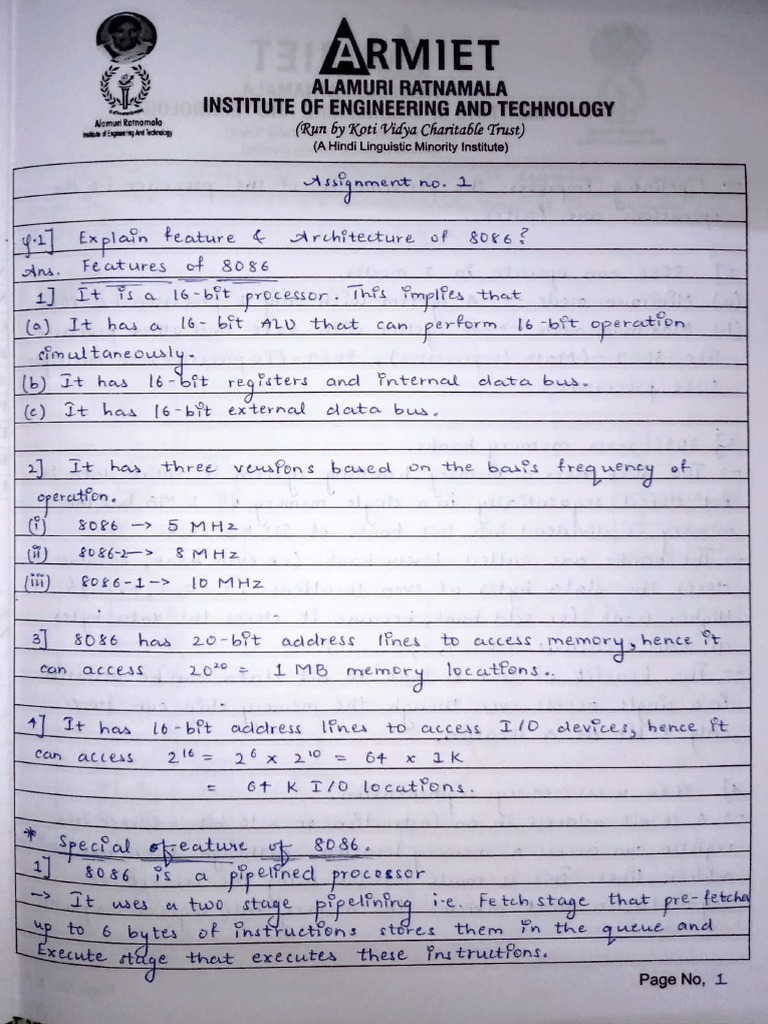 ARMIET
ALAMURI RATNAMALA
INSTITUTE OF ENGINEERING AND TECHNOLOGY
(Run by Koti Vidya Charitable Trust)
(A Hindi Linguistic Minority Institute)
Alamuri Ratnamala
Institute of Engineering And Technology
Assignment no. 1
Q.1] Explain feature & Architecture of 8086?
Ans. Features of 8086
1] It is a 16-bit processor. This implies that
(a) It has a 16-bit ALU that can perform 16-bit operation
simultaneously.
(b) It has 16-bit registers and internal data bus.
(c) It has 16-bit external data bus.
2] It has three versions based on the basis frequency of
operation.
(i) 8086 → 5 MHz
(ii) 8086-2 → 8 MHz
(iii) 8086-1 → 10 MHz
3] 8086 has 20-bit address lines to access memory, hence it
can access 20²⁰ = 1 MB memory locations.
4] It has 16-bit address lines to access I/O devices, hence it
can access 2¹⁶ = 2⁶ x 2¹⁰ = 64 x 1K
= 64 K I/O locations.
* Special feature of 8086.
1] 8086 is a pipelined processor
→ It uses a two stage pipelining i.e. Fetch stage that pre-fetches
up to 6 bytes of instructions stores them in the queue and
Execute stage that executes these instructions.
Page No, 1